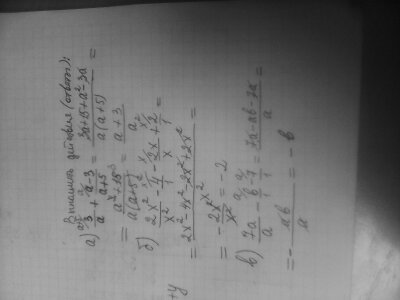 Выполнить действия (ответы):
а) 3/a + a-3/a+5 = 3a+15+a²-3a / a(a+5) =
= a²+15 / a(a+5) a+3
б) 2x²/x² - 4/1 - 2x/x + 2/1 =
= 2x²-4x²-2x²+2x² / x² =
= -2x²/x² = -2
в) 7a/a - b/1 - 7/1 = 7a-ab-7a / a =
= - ab/a = -b
+y